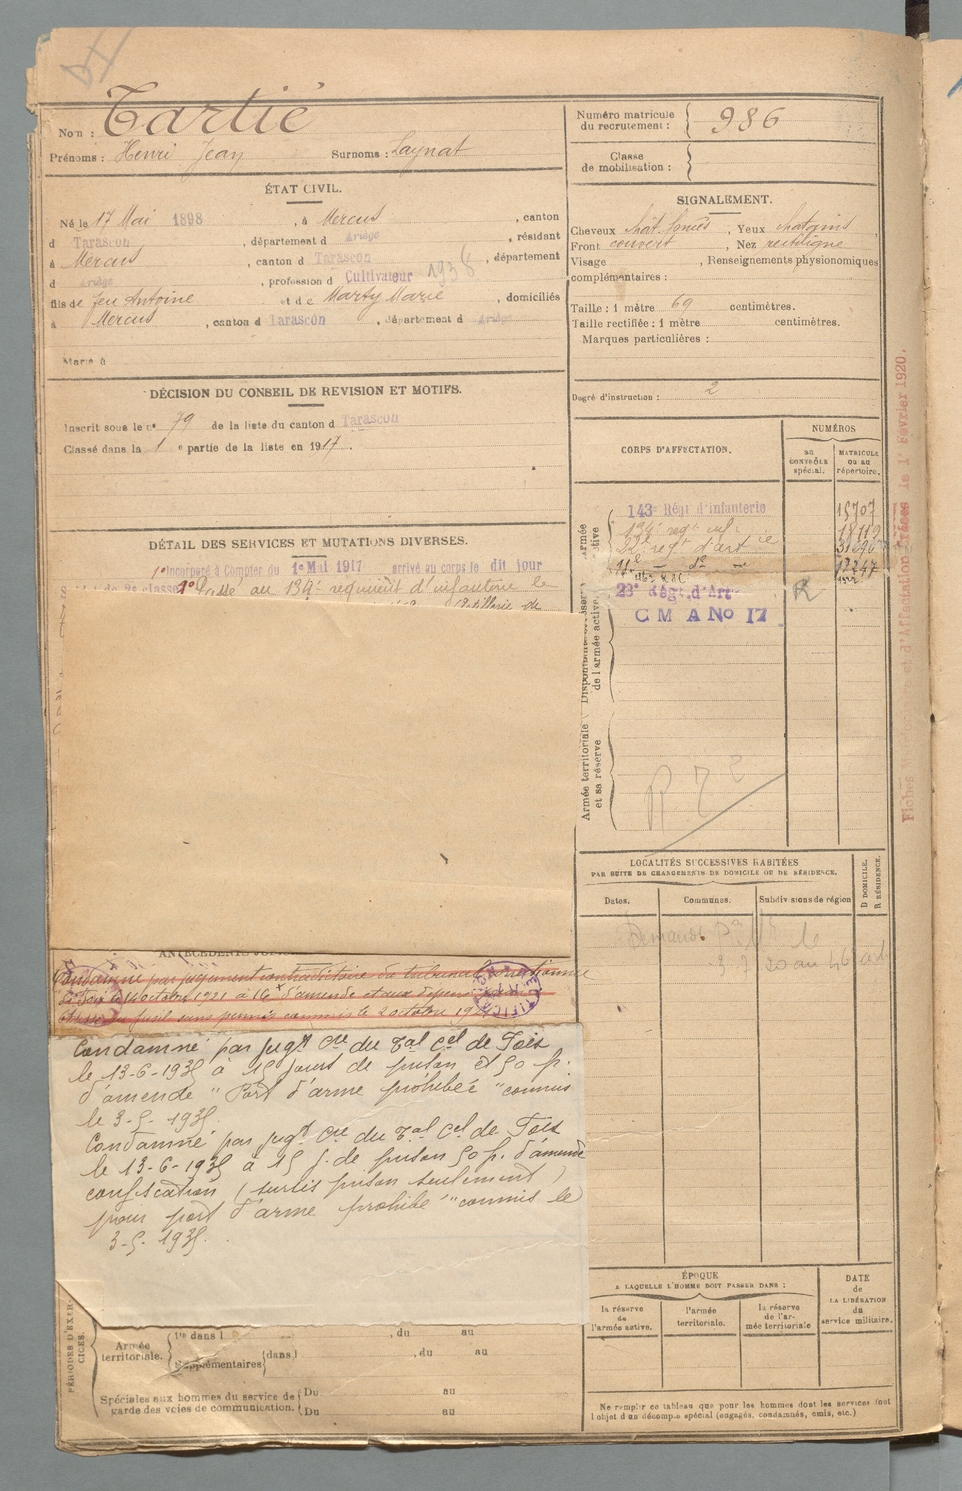 Nom : Tartié
Prénoms : Henri Jean Surnoms : Laynat
Numéro matricule du recrutement : 986
Classe de mobilisation :
ÉTAT CIVIL.
Né le 17 Mai 1898, à Mercus, canton
d Tarascon, département d Ariège, résidant
à Mercus, canton d Tarascon, département
d Ariège, profession d Cultivateur 1938
fils de feu Antoine et de Marty Marie, domiciliés
à Mercus, canton d Tarascon, département d Ariège
Marié à
SIGNALEMENT.
Cheveux chât. foncés, Yeux chatains,
Front couvert, Nez rectiligne
Visage , Renseignements physionomiques
complémentaires :
Taille : 1 mètre 69 centimètres.
Taille rectifiée : 1 mètre centimètres.
Marques particulières :
Degré d'instruction : 2
DÉCISION DU CONSEIL DE REVISION ET MOTIFS.
Inscrit sous le n° 79 de la liste du canton d Tarascon
Classé dans la 1 e partie de la liste en 1917.
DÉTAIL DES SERVICES ET MUTATIONS DIVERSES.
1° Incorporé à Compter du 1e Mai 1917 arrivé au corps le dit jour
de 2e classe 1° Passé au 134e régiment d'infanterie le
Artillerie de
CORPS D'AFFECTATION.
NUMÉROS
au contrôle spécial.
MATRICULE ou au répertoire.
143e Régt d'Infanterie 15707
134e regt inf. 18119
32e regt d'art ie 31696
11e — d° — 12247
28e Régt. d'Art R
C M A No 17
Armée active
Disponibilité et réserve de l'armée active
Armée territoriale et sa réserve
Fiches et d'Affectation le 1r Février 1920.
LOCALITÉS SUCCESSIVES HABITÉES
PAR SUITE DE CHANGEMENTS DE DOMICILE OU DE RÉSIDENCE.
Dates. Communes. Subdivisions de région
D DOMICILE.
R RÉSIDENCE.
Condamné par jugement contradictoire du tribunal correctionnel
de Foix le 14 octobre 1921 à 16 f d'amende et aux dépens
chasse au fusil sans permis commis le 2 octobre
Condamné par jugt cre du Tal Cel de Foix
le 13-6-1935 à 15 jours de prison et 50 f.
d'amende "Port d'arme prohibée" commis
le 3-5-1935
Condamné par jugt Cre du Tal Cel de Foix
le 13-6-1935 à 15 j. de prison 50 f. d'amende
confiscation (sursis prison seulement)
pour port d'arme prohibé "commis le
3-5-1935.
PÉRIODES D'EXERCICES.
Armée territoriale.
1re dans l , du au
Supplémentaires dans l , du au
Spéciales aux hommes du service de garde des voies de communication.
Du au
Du au
ÉPOQUE
A LAQUELLE L'HOMME DOIT PASSER DANS :
la réserve de l'armée active.
l'armée territoriale.
la réserve de l'armée territoriale
DATE de LA LIBÉRATION du service militaire.
Ne remplir ce tableau que pour les hommes dont les services font
l'objet d'un décompte spécial (engagés, condamnés, omis, etc.)